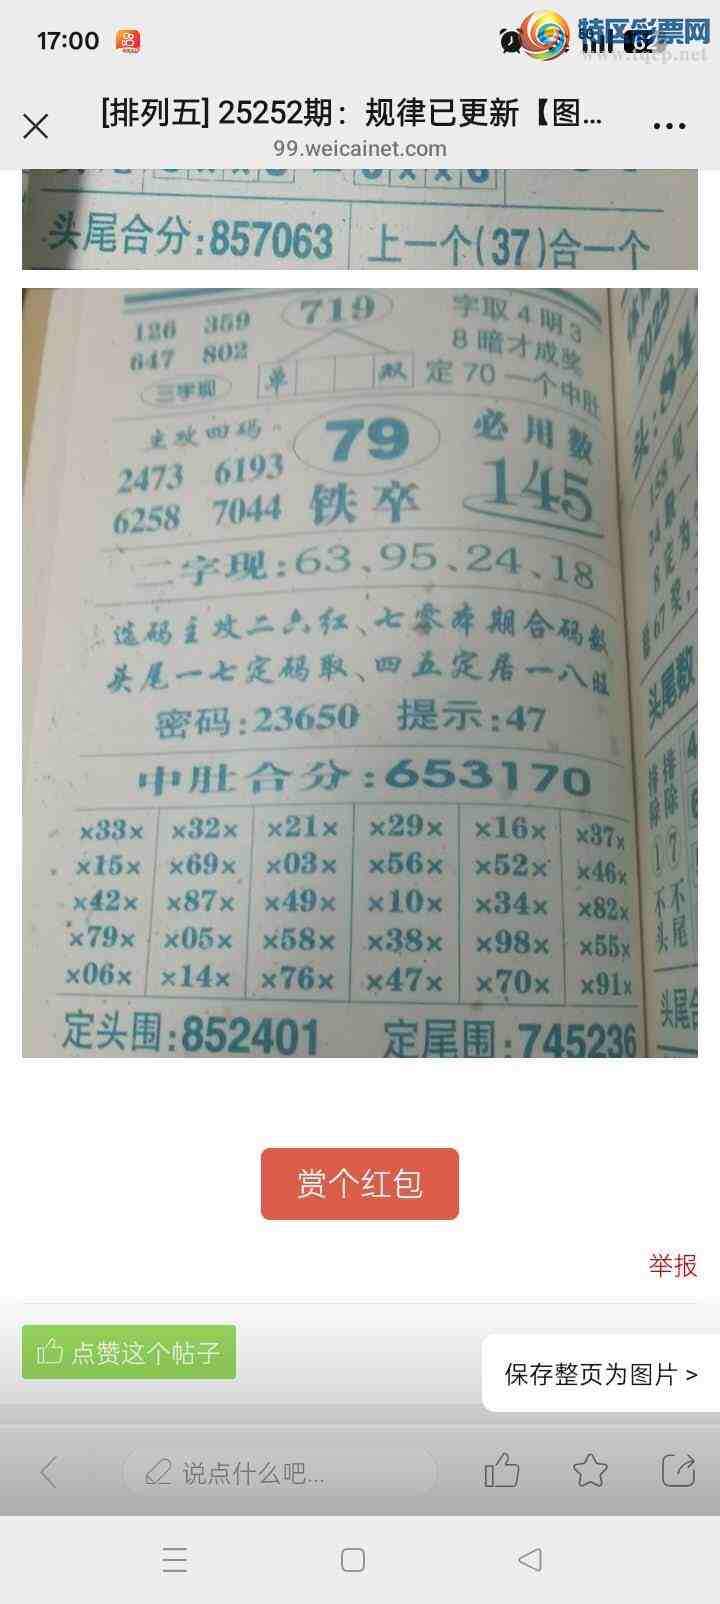 17:00
特区彩票网
www.tqcp.net
[排列五] 25252期：规律已更新【图...
99.weicainet.com
头尾合分:857063 上一个(37)合一个
126 359 719 字取4期3
647 802 8暗才成奖
三字现 单 双 定70一个中肚
主攻四码 79 必用数
2473 6193 145
6258 7044 铁卒
二字现:63、95、24、18
选码主攻二六红、七零本期合码数
头尾一七定码取、四五定居一八旺
密码:23650 提示:47
中肚合分:653170
×33× ×32× ×21× ×29× ×16× ×37×
×15× ×69× ×03× ×56× ×52× ×46×
×42× ×87× ×49× ×10× ×34× ×82×
×79× ×05× ×58× ×38× ×98× ×55×
×06× ×14× ×76× ×47× ×70× ×91×
定头围:852401 定尾围:745236
头尾数
排除
排除
①⑦
不头
不尾
赏个红包
举报
点赞这个帖子
保存整页为图片 >
说点什么吧...